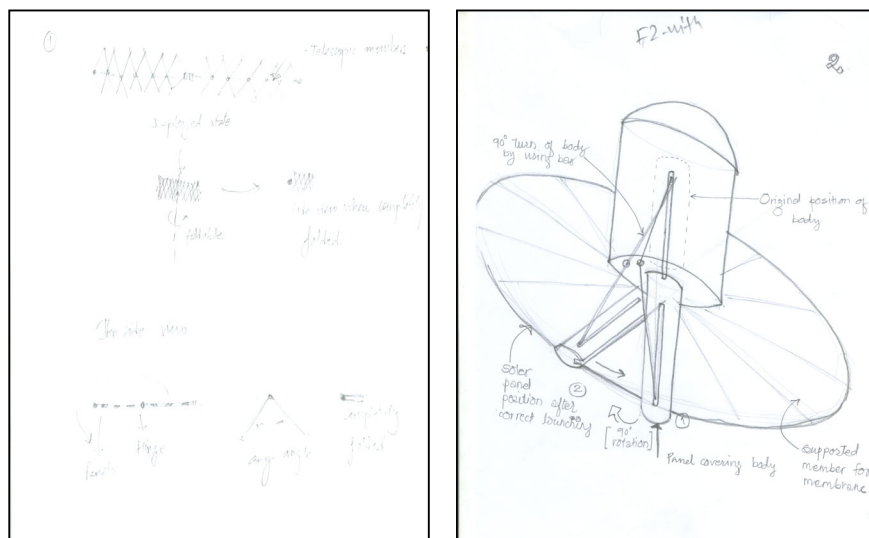 ①
- Telescopic member
Deployed state
foldable
Side view when completely
folded
The side view
Panels
Hinge
any angle
completely
folded
F2-with
2.
90° turn of body
by using bar
Original position of
body
solar
panel
position after
correct launching
②
90°
[rotation]
①
Panel covering body
supported
member for
membrane